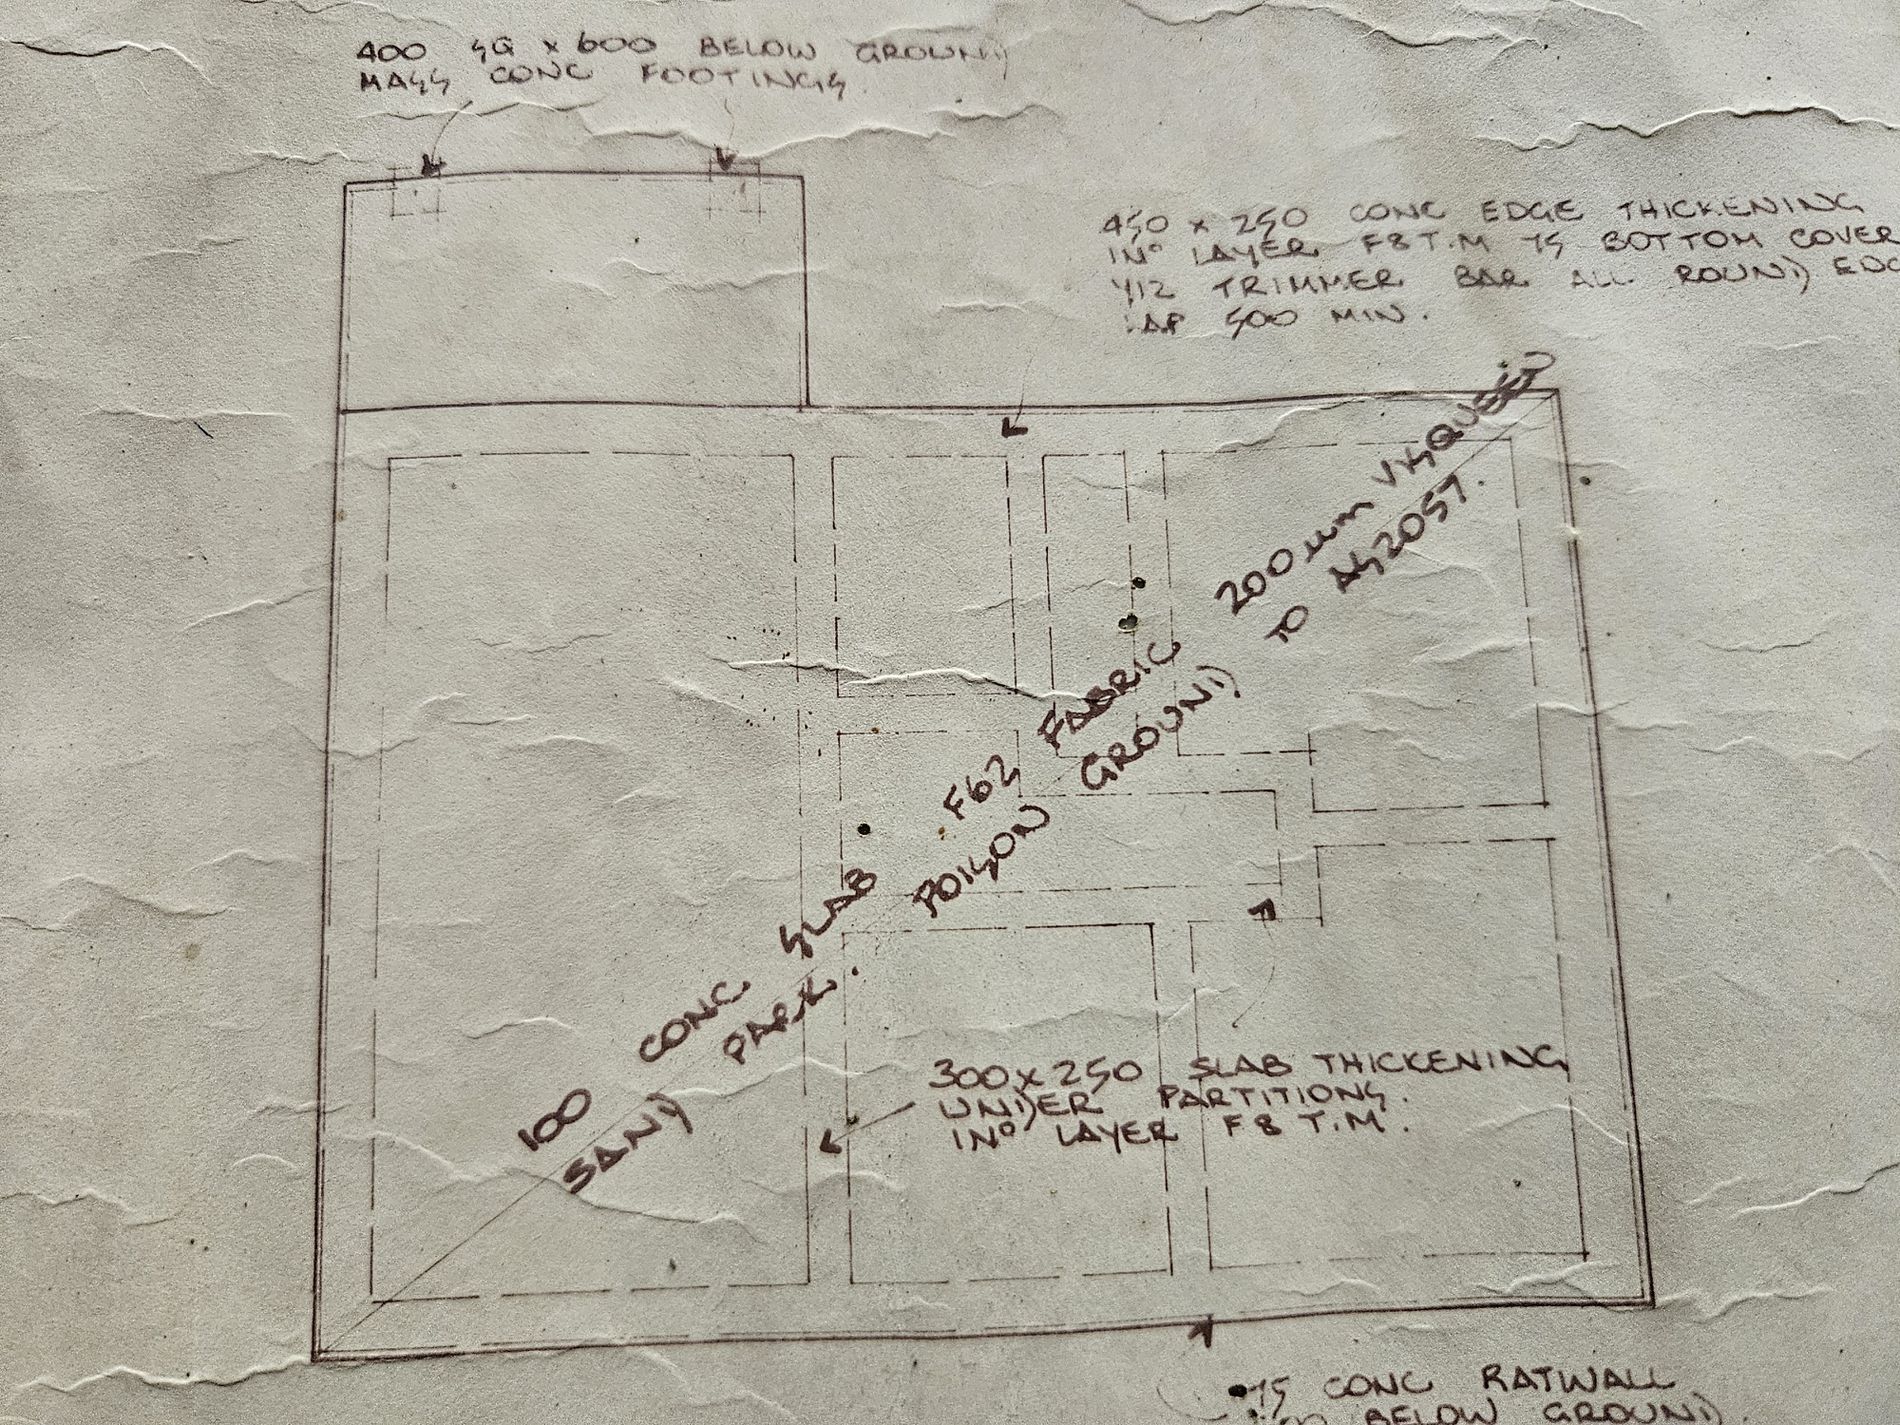 400 SQ x 600 BELOW GROUND
MASS CONC FOOTINGS.
450 x 250 CONC EDGE THICKENING
1Nº LAYER F8 T.M 75 BOTTOM COVER
Y12 TRIMMER BAR ALL ROUND EDG
LAP 500 MIN.
100 CONC SLAB F62 FABRIC 200 um VISQUEEN
SAND PACK. POISON GROUND TO AS2057.
300 x 250 SLAB THICKENING
UNDER PARTITIONS.
1Nº LAYER F8 T.M.
75 CONC RATWALL
BELOW GROUND